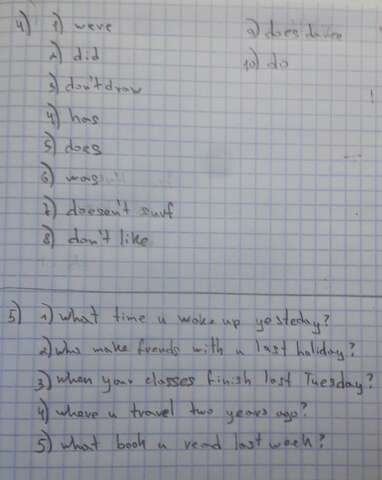 4) 1) were 9) does
2) did 10) do
3) don't draw
4) has
5) does
6) was
7) doesen't surf
8) don't like
5) 1) what time u woke up yesteday?
2) who make frends with u last holiday?
3) when your classes finish last Tuesday?
4) where u travel two years ago?
5) what book u read last week?